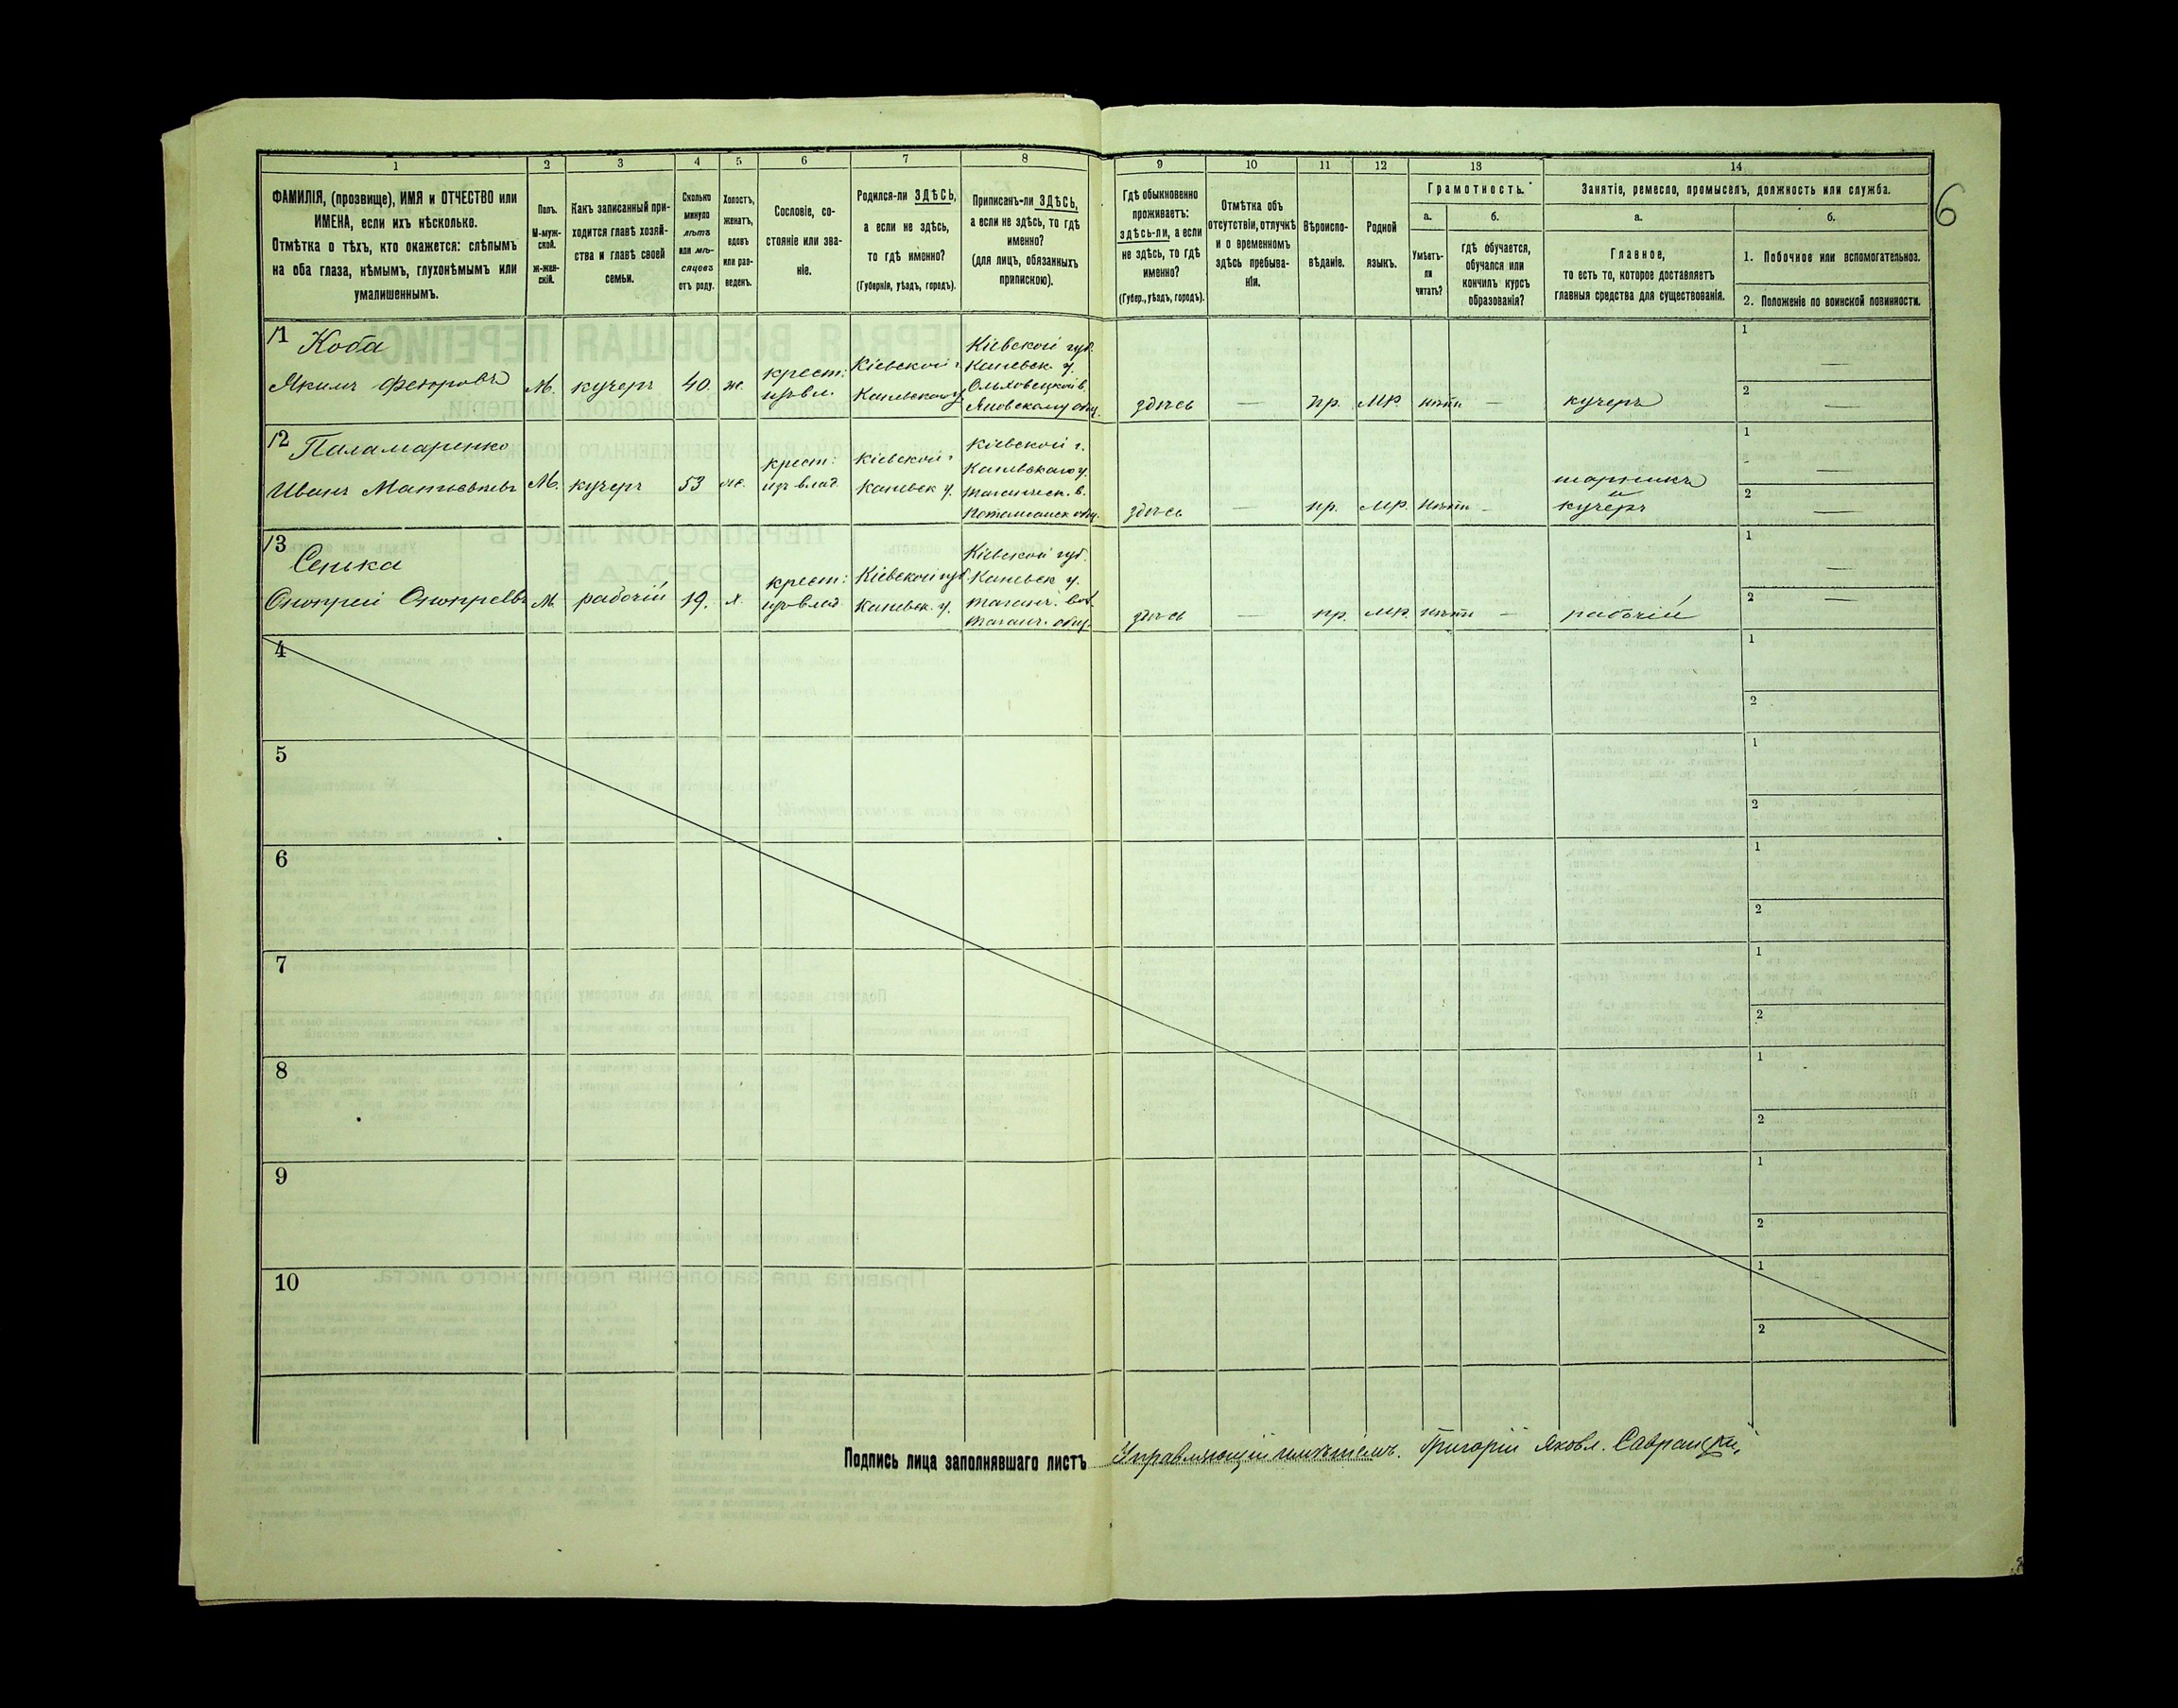 1 2 3 4 5 6 7 8 9 10 11 12 13 14
ФАМИЛІЯ, (прозвище), ИМЯ и ОТЧЕСТВО или
ИМЕНА, если ихъ нѣсколько.
Отмѣтка о тѣхъ, кто окажется: слѣпымъ
на оба глаза, нѣмымъ, глухонѣмымъ или
умалишеннымъ.
Полъ.
М-муж-
ской.
Ж-жен-
скій.
Какъ записанный при-
ходится главѣ хозяй-
ства и главѣ своей
семьи.
Сколько
минуло
лѣтъ
или мѣ-
сяцевъ
отъ роду.
Холостъ,
женатъ,
вдовъ
или раз-
веденъ.
Сословіе, со-
стояніе или зва-
ніе.
Родился-ли ЗДѢСЬ,
а если не здѣсь,
то гдѣ именно?
(Губернія, уѣздъ, городъ).
Приписанъ-ли ЗДѢСЬ,
а если не здѣсь, то гдѣ
именно?
(для лицъ, обязанныхъ
припискою).
Гдѣ обыкновенно
проживаетъ:
здѣсь-ли, а если
не здѣсь, то гдѣ
именно?
(Губер., уѣздъ, городъ).
Отмѣтка объ
отсутствіи, отлучкѣ
и о временномъ
здѣсь пребыва-
ніи.
Вѣроиспо-
вѣданіе.
Родной
языкъ.
Грамотность.
а.
Умѣетъ-
ли
читать?
б.
гдѣ обучается,
обучался или
кончилъ курсъ
образованія?
Занятіе, ремесло, промыселъ, должность или служба.
а.
Главное,
то есть то, которое доставляетъ
главныя средства для существованія.
б.
1. Побочное или вспомогательное.
2. Положеніе по воинской повинности.
6
11 Коба
Якимъ Федоровъ
М.
кучеръ
40.
ж.
крест:
Кіевской г.
Каневскаго у.
Кіевской губ.
Каневск. у.
Ольховецкой в.
Яновскому общ.
здѣсь
—
пр.
МР.
нѣтъ
—
кучеръ
1 —
2 —
12 Паламаренко
Иванъ Матвѣевъ
М.
кучеръ
53
ж.
крест:
изъ влад.
Кіевской г.
Каневск у.
Кіевской г.
Каневскаго у.
Таганческ. в.
здѣсь
—
пр.
МР.
нѣтъ
—
шорникъ
и
кучеръ
1 —
2 —
13
Сенька
Онопрей Онопреевъ
М.
рабочій
19.
х.
крест:
изъ влад.
Кіевской губ.
Каневск. у.
Кіевской губ.
Каневск у.
Таганч. вол.
Таганч. общ.
здѣсь
—
пр.
МР.
нѣтъ
—
рабочій
1 —
2 —
4
1
2
5
1
2
6
1
2
7
1
2
8
1
2
9
1
2
10
1
2
Подпись лица заполнявшаго листъ Управляющій имѣніемъ. Григорій Яковл. Савранскій